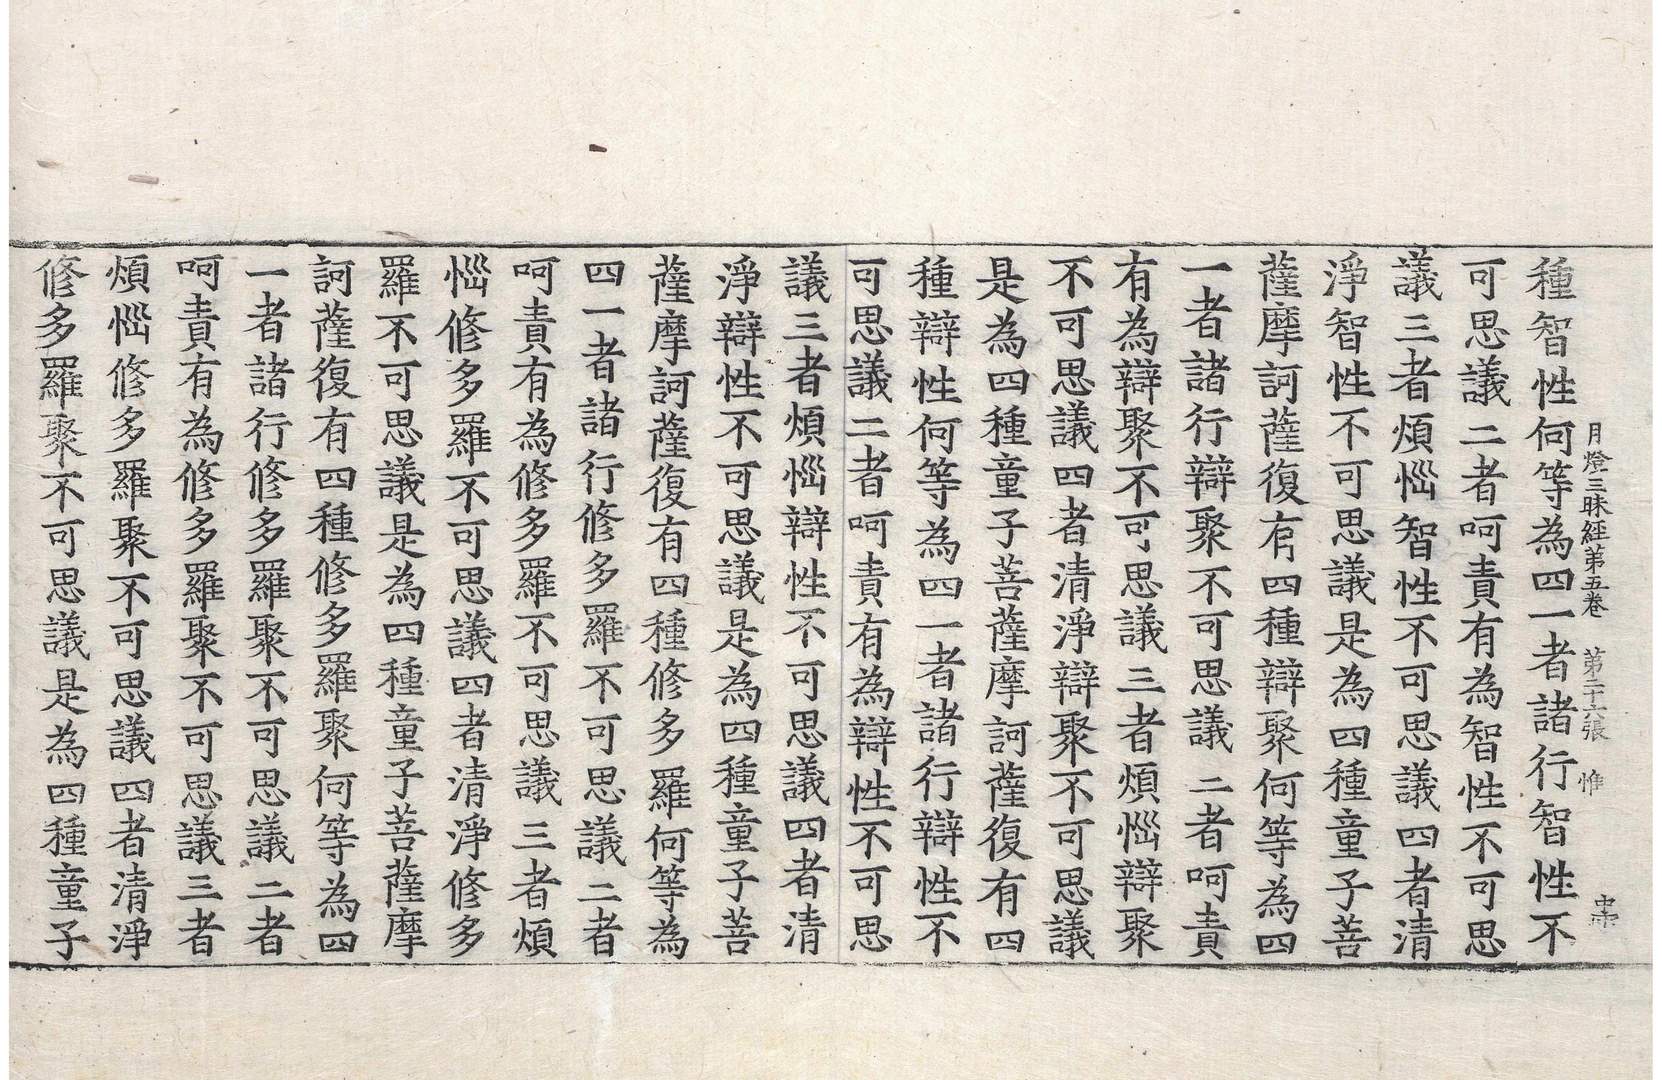 月燈三昧經第五卷 第二十六張 惟
種智性何等為四一者諸行智性不
可思議二者呵責有為智性不可思
議三者煩惱智性不可思議四者清
淨智性不可思議是為四種童子菩
薩摩訶薩復有四種辯聚何等為四
一者諸行辯聚不可思議二者呵責
有為辯聚不可思議三者煩惱辯聚
不可思議四者清淨辯聚不可思議
是為四種童子菩薩摩訶薩復有四
種辯性何等為四一者諸行辯性不
可思議二者呵責有為辯性不可思
議三者煩惱辯性不可思議四者清
淨辯性不可思議是為四種童子菩
薩摩訶薩復有四種修多羅何等為
四一者諸行修多羅不可思議二者
呵責有為修多羅不可思議三者煩
惱修多羅不可思議四者清淨修多
羅不可思議是為四種童子菩薩摩
訶薩復有四種修多羅聚何等為四
一者諸行修多羅聚不可思議二者
呵責有為修多羅聚不可思議三者
煩惱修多羅聚不可思議四者清淨
修多羅聚不可思議是為四種童子